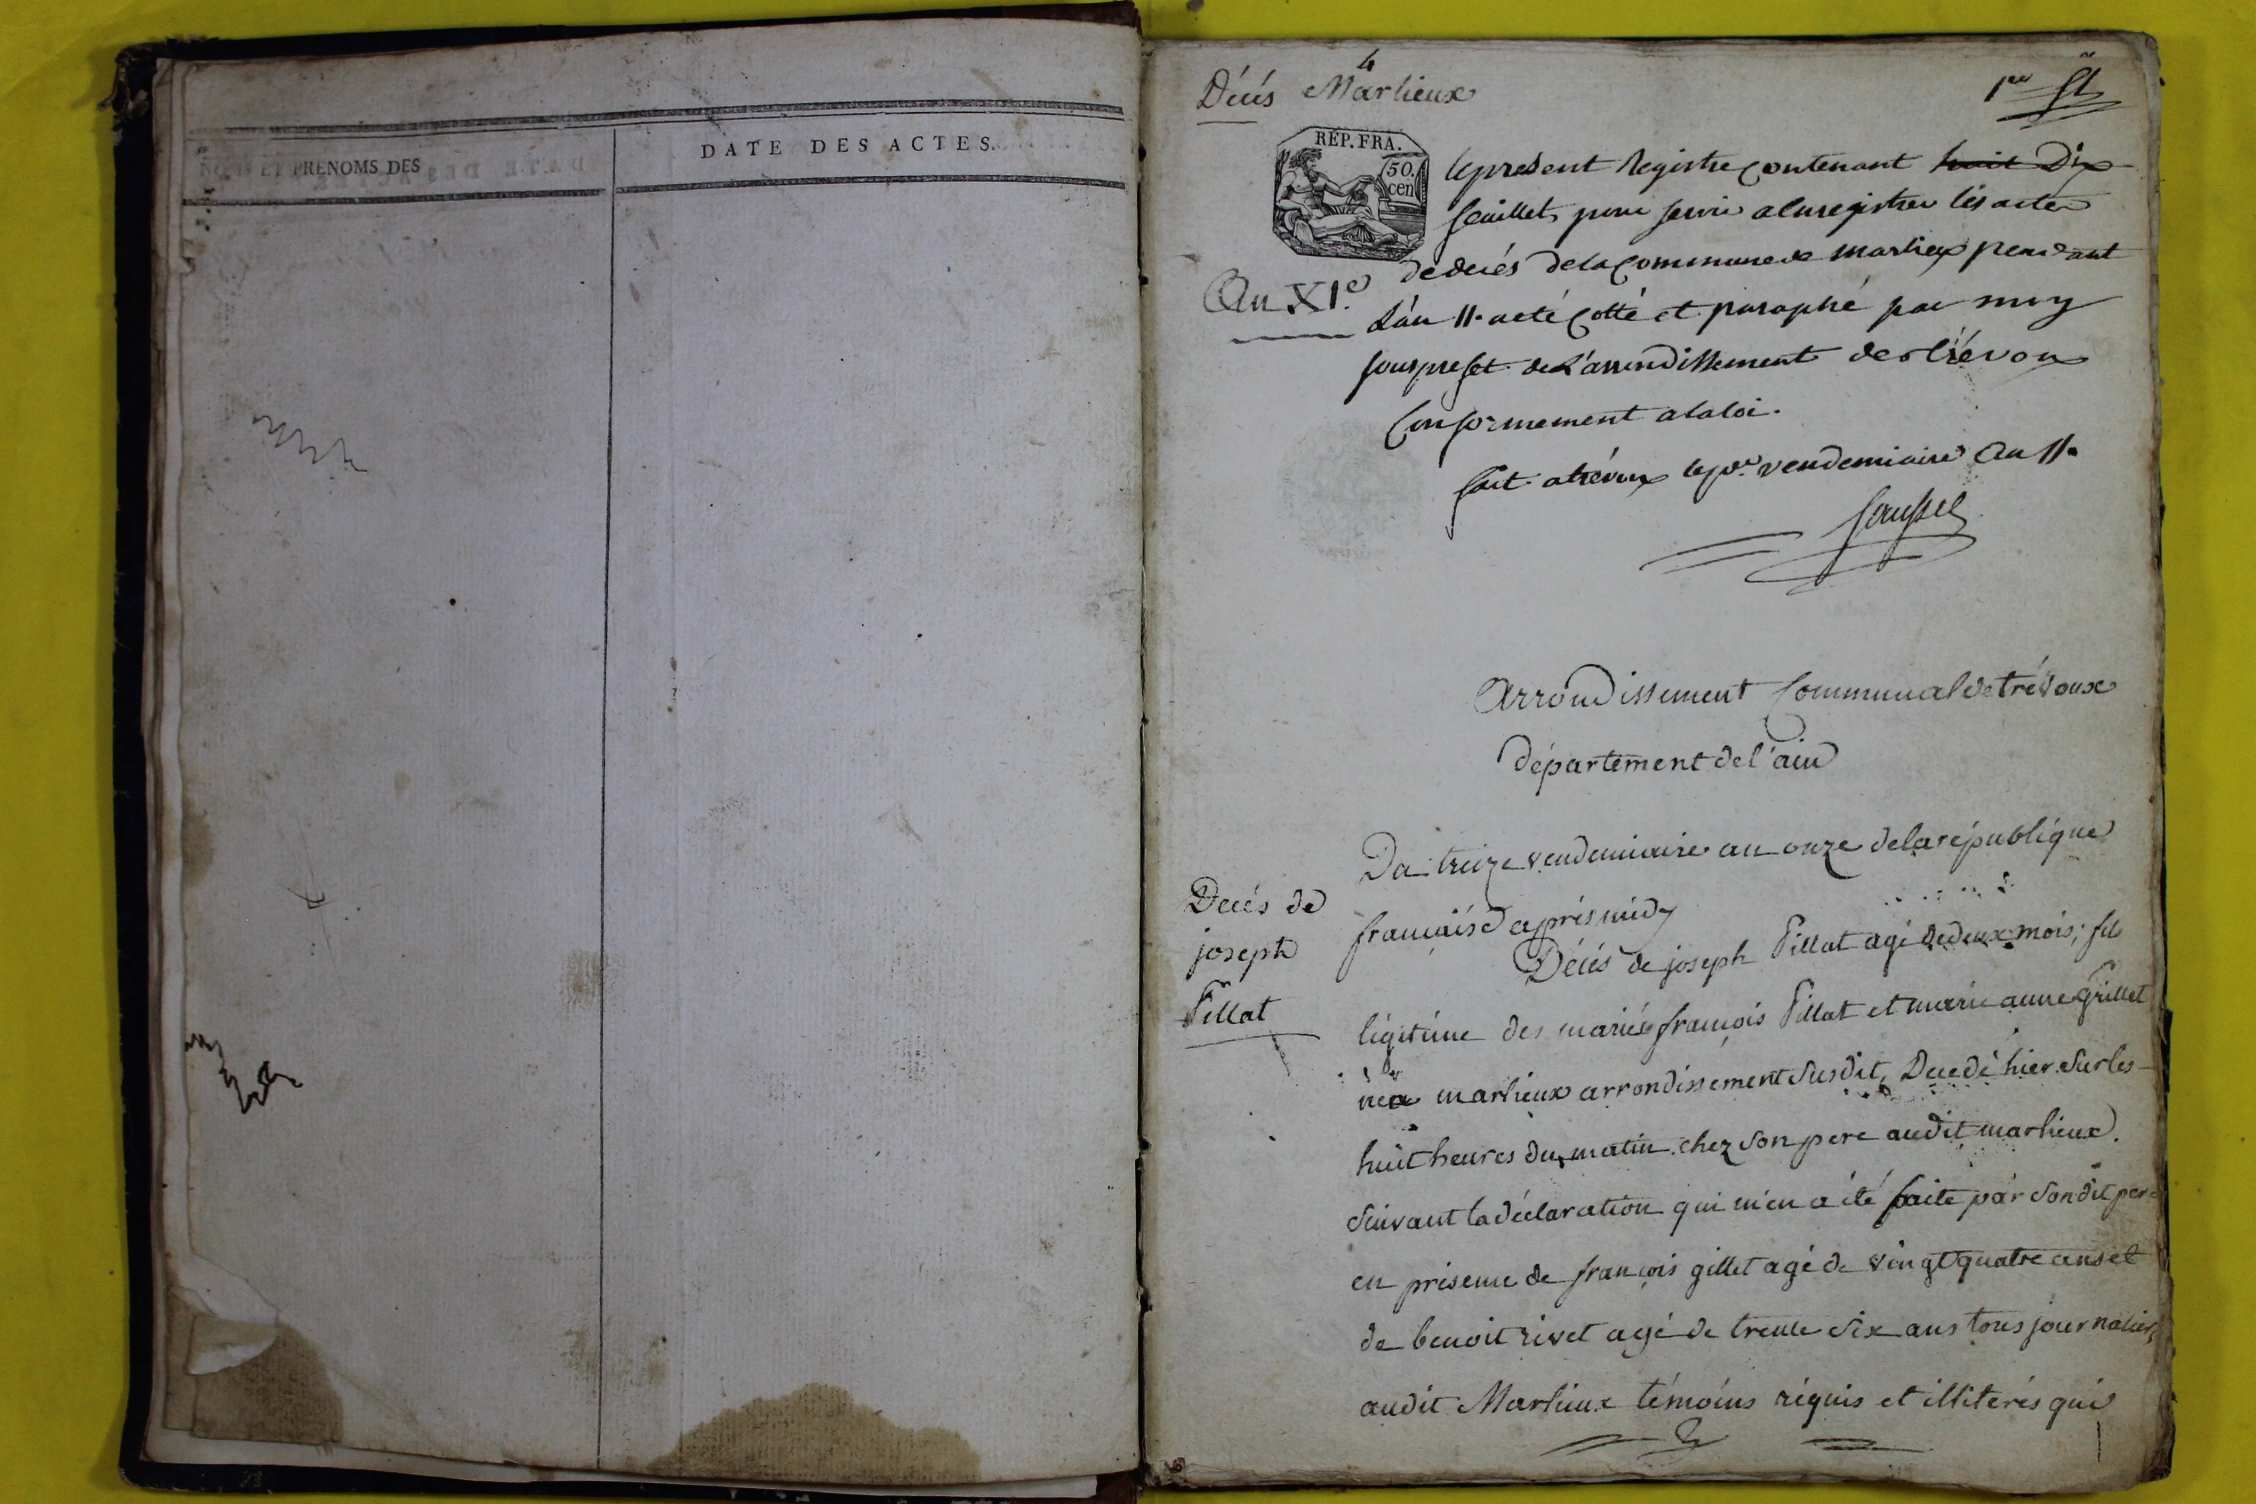 NOMS ET PRENOMS DES
DATE DES ACTES.
4
Décés Marlieux
1er ft
REP. FRA.
50.
cen
An XI.e
le present Registre Contenant huit Dix
feuillets pour servir a Enregistrer les actes
de decés de la Commune de marlieux pendant
L'an 11. a eté Cotté et paraphé par moy
sous prefet de L'arrondissement de trévoux
Conformement a la loi.
fait a trévoux le pr. vendemiaire an 11.
Arrondissement Communal de trévoux
département de l'ain
Decés de
joseph
Pillat
Du treize vendemiaire an onze de la république
française aprés midy
Décés de joseph Pillat agé de deux mois, fils
légitime des mariés françois Pillat et marie anne Grillet
né a marlieux arrondissement Susdit, Decedé hier Sur les
huit heures du matin chez Son pere audit marlieux.
Suivant la déclaration qui m'en a été faite par Son dit pere
en présence de françois gillet agé de vingt quatre ans et
de benoit rivet agé de trente Six ans tous journaliers
audit Marlieux témoins réquis et illiterés qui